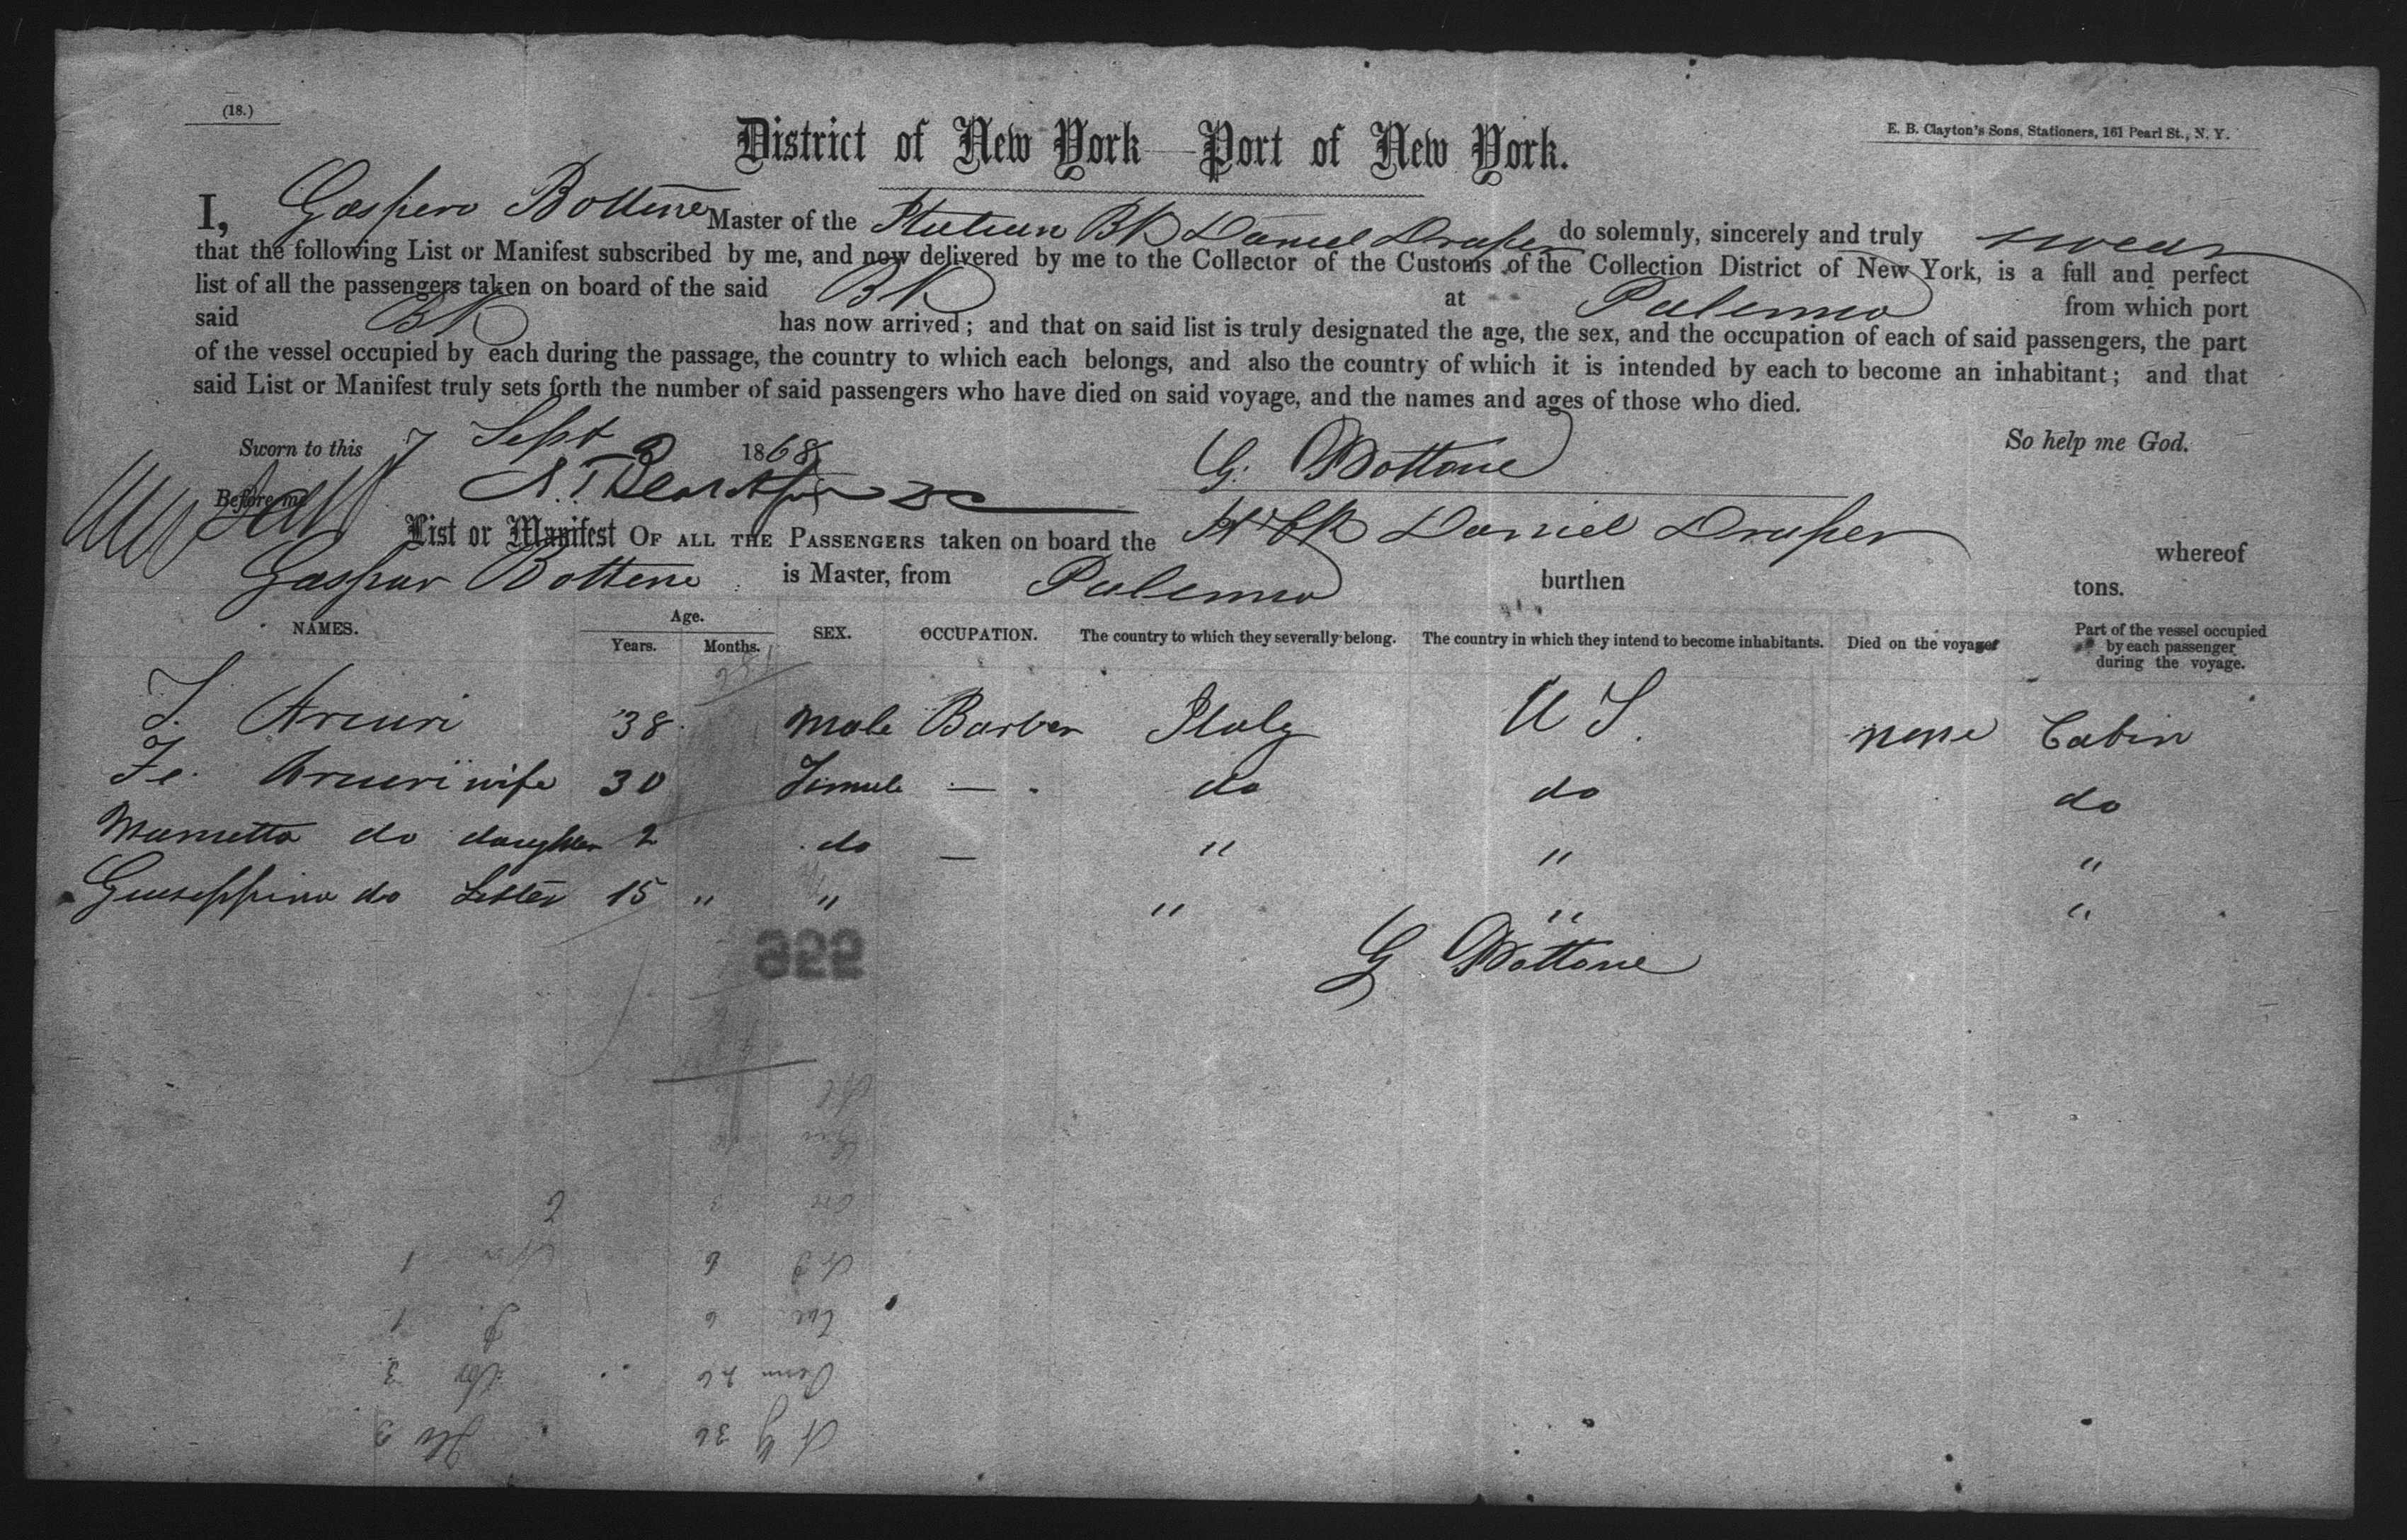 (18.)
E. B. Clayton's Sons, Stationers, 161 Pearl St., N. Y.
District of New York—Port of New York.
I, Gaspero Bottone Master of the Italian Bk Daniel Draper do solemnly, sincerely and truly swear
that the following List or Manifest subscribed by me, and now delivered by me to the Collector of the Customs of the Collection District of New York, is a full and perfect
list of all the passengers taken on board of the said Bk at Palermo from which port
said Bk has now arrived; and that on said list is truly designated the age, the sex, and the occupation of each of said passengers, the part
of the vessel occupied by each during the passage, the country to which each belongs, and also the country of which it is intended by each to become an inhabitant; and that
said List or Manifest truly sets forth the number of said passengers who have died on said voyage, and the names and ages of those who died.
Sworn to this 7 Sept 1868 So help me God.
Before me G. Bottone
List or Manifest OF ALL THE PASSENGERS taken on board the It Bk Daniel Draper whereof
Gaspar Bottone is Master, from Palermo burthen tons.
NAMES. Age. Years. Months. SEX. OCCUPATION. The country to which they severally belong. The country in which they intend to become inhabitants. Died on the voyage Part of the vessel occupied by each passenger during the voyage.
Arcuri 38 Male Barber Italy U S. none Cabin
Fe. Arcuri wife 30 Female — do do do
do daughter 2 do — " " "
Giuseppina do Sister 15 " " " " "
G Bottone